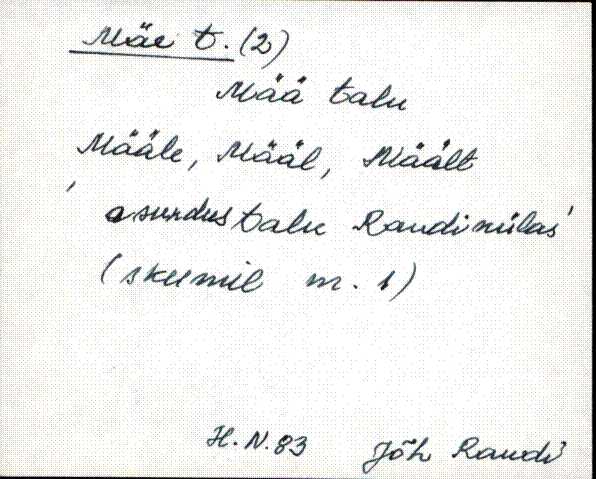 Mäe t. (2)
Mää talu
Määle, Määl, Mäält
' asundustalu Raudi nülas'
(skeemil m. 1)
H.N. 83 Jõh Raudi